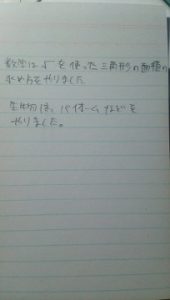 数学は√を使った三角形の面積の
求め方をやりました
生物は、バイオームなどを
やりました。